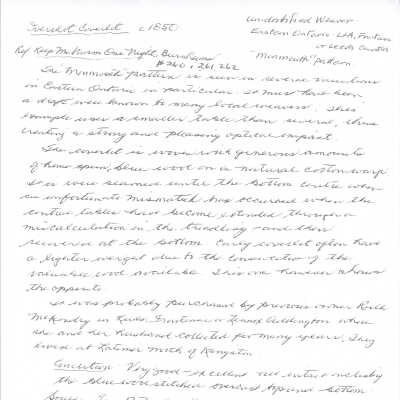 Overshot Coverlet c 1850
Unidentified Weaver
Eastern Ontario - L&A, Frontenac
or Leeds Counties
"Monmouth" pattern
Ref Keep Me Warm One Night, Burnham's
#260, 261, 262
The Monmouth pattern is seen in several
in Eastern Ontario in particular so must have been
a draft well known to many local weavers. This
example uses a smaller table than several, thus
creating a strong and pleasing optical impact.
The coverlet is woven with generous amounts
of homespun, blue wool on a natural cotton warp
It is well seamed until the bottom centre when
an unfortunate mismatch has occurred when the
centre tables have become extended through a
miscalculation in the treadling - and then
recovered at the bottom. Early coverlets often have
a lighter overshot due to the conservation of the
valuable wool available. This one however shows
the opposite.
It was probably purchased by previous owner Ruth
McKendry in Leeds, Frontenac or Lennox Addington where
she and her husband collected for many years. They
lived at Latimer north of Kingston.
Condition Very good - excellent
the blue wool stitched overcast top and bottom